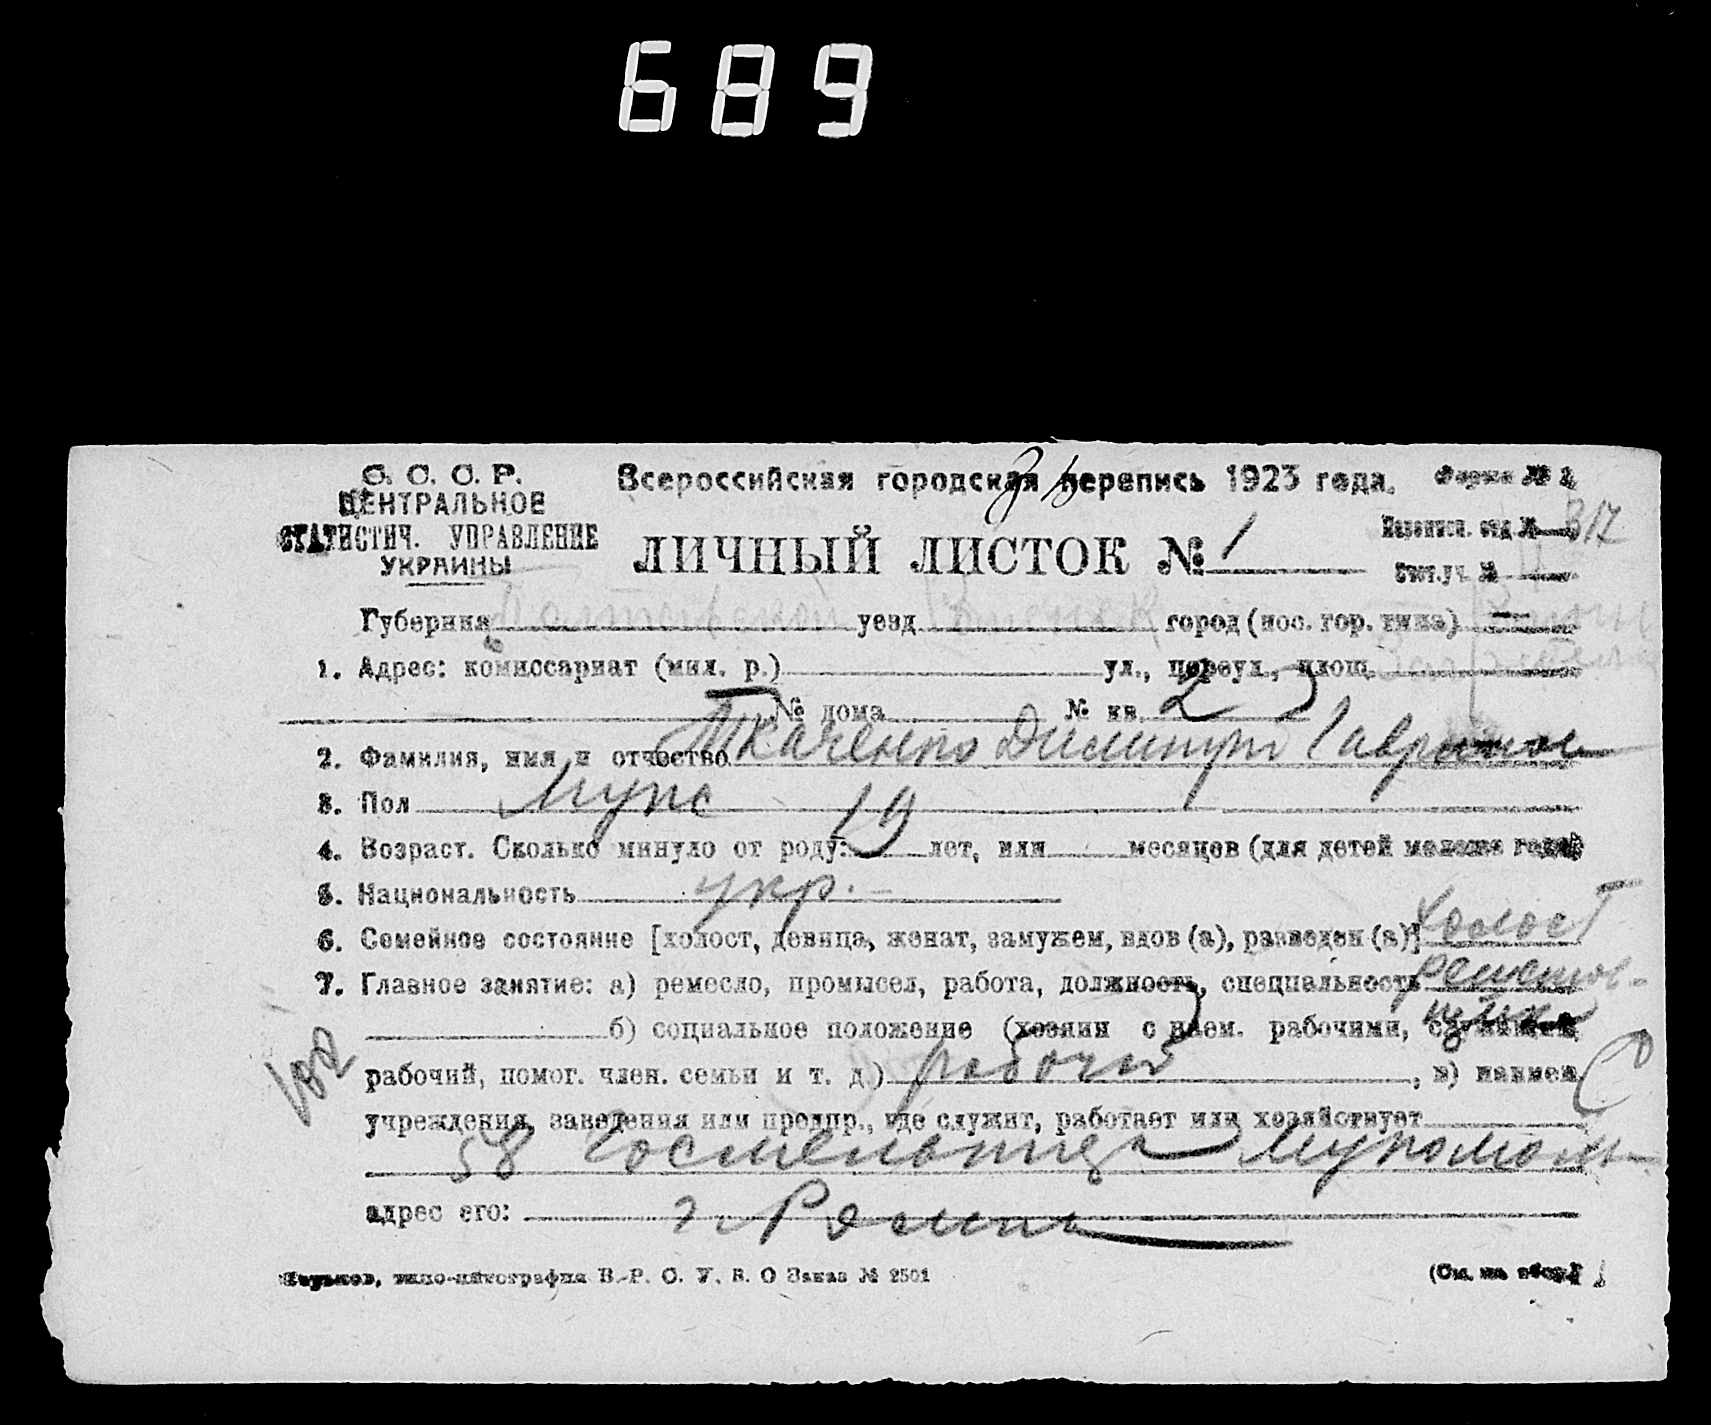 689
С. С. С. Р.
ЦЕНТРАЛЬНОЕ
СТАТИСТИЧ. УПРАВЛЕНИЕ
УКРАИНЫ
Всероссийская городская перепись 1923 года.
Форма № 2
ЛИЧНЫЙ ЛИСТОК № 1
Губерния Полтавской уезд город (пос. гор. типа)
1. Адрес: комиссариат (мил. р.) ул., переул., площ.
№ дома № кв. 2
2. Фамилия, имя и отчество Ткаченко Димитри
3. Пол Мужс
4. Возраст. Сколько минуло от роду: 19 лет, или месяцев (для детей моложе года)
5. Национальность укр.
6. Семейное состояние [холост, девица, женат, замужем, вдов (а), разведен (а)] холост
7. Главное занятие: а) ремесло, промысел, работа, должность, специальность
б) социальное положение (хозяин с наем. рабочими, служащий
182
рабочий, помог. член. семьи и т. д.) рабочий, в) наимен.
учреждения, заведения или предпр., где служит, работает или хозяйствует
58 Госмельница мукомольн
адрес его: г. Ромны
Харьков, типо-литография В. Р. С. У. В. О Заказ № 2501
(См. на обор.)